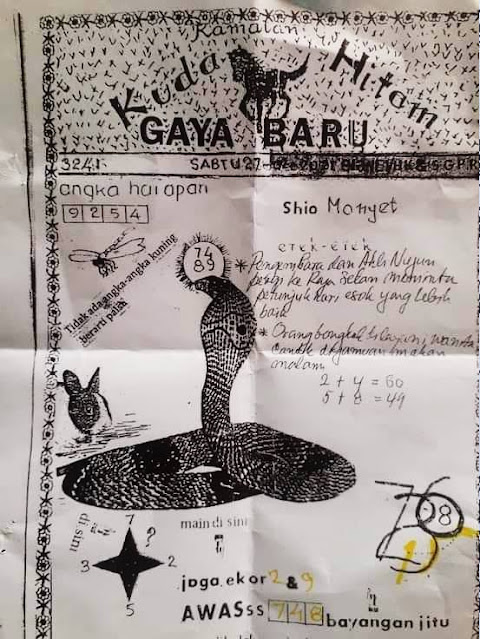 Ramalan
Kuda Hitam
GAYA BARU
3241
SABTU 27-02-2021 & SGPR
angka harapan
9 2 5 4
Shio Monyet
74
89
Tidak ada angka-angka kuning
berarti palsu
ETEK-ETEK
* Pengembara dan Ahli Nujum
pergi ke Raja Setan meminta
petunjuk hari esok yang lebih
baik
* Orang bongkok
malam
2 + 4 = 60
5 + 8 = 49
76
08
1
di sini
7
?
3
2
5
main di sini
jaga ekor 2 & 9
AWASss 7 4 8 bayangan jitu